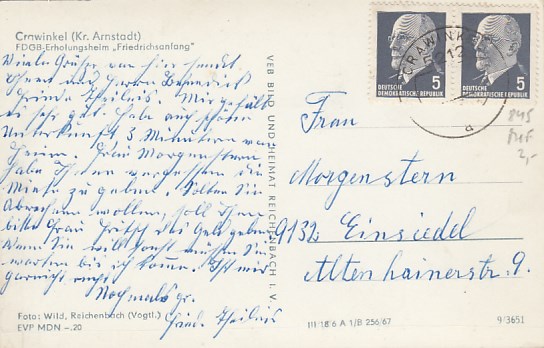 Crawinkel (Kr. Arnstadt)
FDGB-Erholungsheim „Friedrichsanfang"
Viele Grüße von hier sendet
Ihnen und Herrn Benedick
Frieda Theilnis. Mir gefällt
es sehr gut. Habe auch schöne
Unterkunft 3 Minuten vom
Heim. Frau Morgenstern
habe Ihnen vergessen die
Miete zu geben. Sollten Sie
Abrechnen wollen, soll Ihnen
bitte Frau Fritsch das Geld geben
Wenn Sie will sonst müssen Sie
warten bis ich komme. Ist mir
garnicht recht
Nochmals gr.
Frieda Theilnis
Foto: Wild, Reichenbach (Vogtl.)
EVP MDN -.20
VEB BILD UND HEIMAT REICHENBACH I. V.
CRAWINKEL
a
5
DEUTSCHE
DEMOKRATISCHE REPUBLIK
5
DEUTSCHE
DEMOKRATISCHE REPUBLIK
845
2,-
Frau
Morgenstern
9132 Einsiedel
Altenhainerstr. 9.
III 18 6 A 1/B 256/67
9/3651